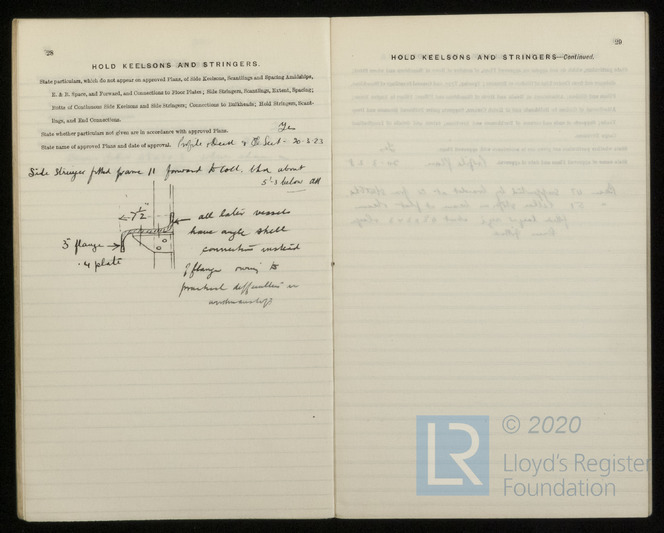 28
HOLD KEELSONS AND STRINGERS.
State particulars, which do not appear on approved Plans, of Side Keelsons, Scantlings and Spacing Amidships,
E. & B. Space, and Forward, and Connections to Floor Plates; Side Stringers, Scantlings, Extent, Spacing;
Butts of Continuous Side Keelsons and Side Stringers; Connections to Bulkheads; Hold Stringers, Scant-
lings, and End Connections.
State whether particulars not given are in accordance with approved Plans. Yes
State name of approved Plans and date of approval. Profile & Deck & 20-3-23
Side Stringer fitted frame 11 forward to Coll. Bhd about
5'-3 below
7½"
3" flange
.4 plate
all later vessels
have angle shell
connection instead
of flange owing to
practical difficulties in
workmanship
29
HOLD KEELSONS AND STRINGERS—Continued.
LR
© 2020
Lloyd's Register
Foundation